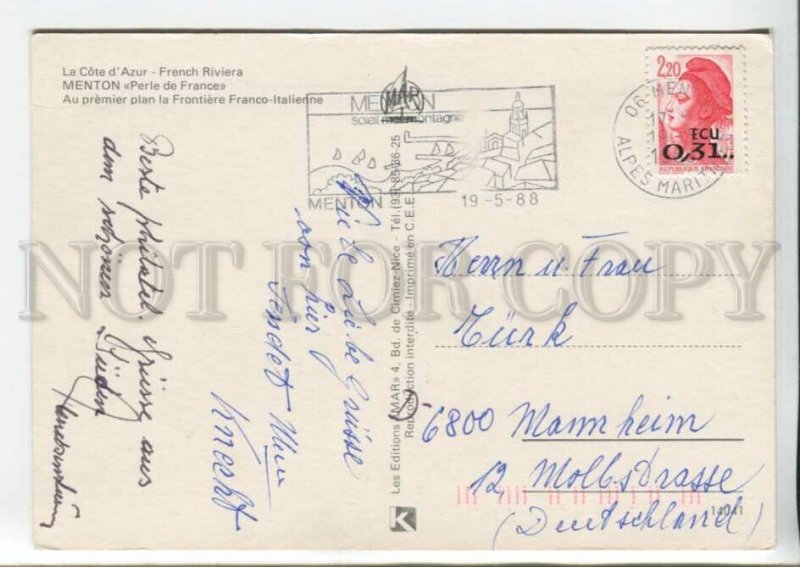 La Côte d'Azur - French Riviera
MENTON «Perle de France»
Au prèmier plan la Frontière Franco-Italienne
MENTON
soleil mer montagne
MAR
MENTON
19-5-88
06 MEN
ALPES MARIT
2,20
ECU
0,31
REPUBLIQUE FRANÇAISE
Beste philatel. Grüsse aus
dem schönen Süden
Liebe Grüsse
von hier
sendet
Knecht
Les Editions «MAR» 4, Bd. de Cimiez-Nice - Tél. (93) 85-36-25
Reproduction interdite - Imprimé en C.E.E.
K
Herrn u Frau
Türk
6800 Mannheim
12, Mollstrasse
(Deutschland)
14041
NOT FOR COPY